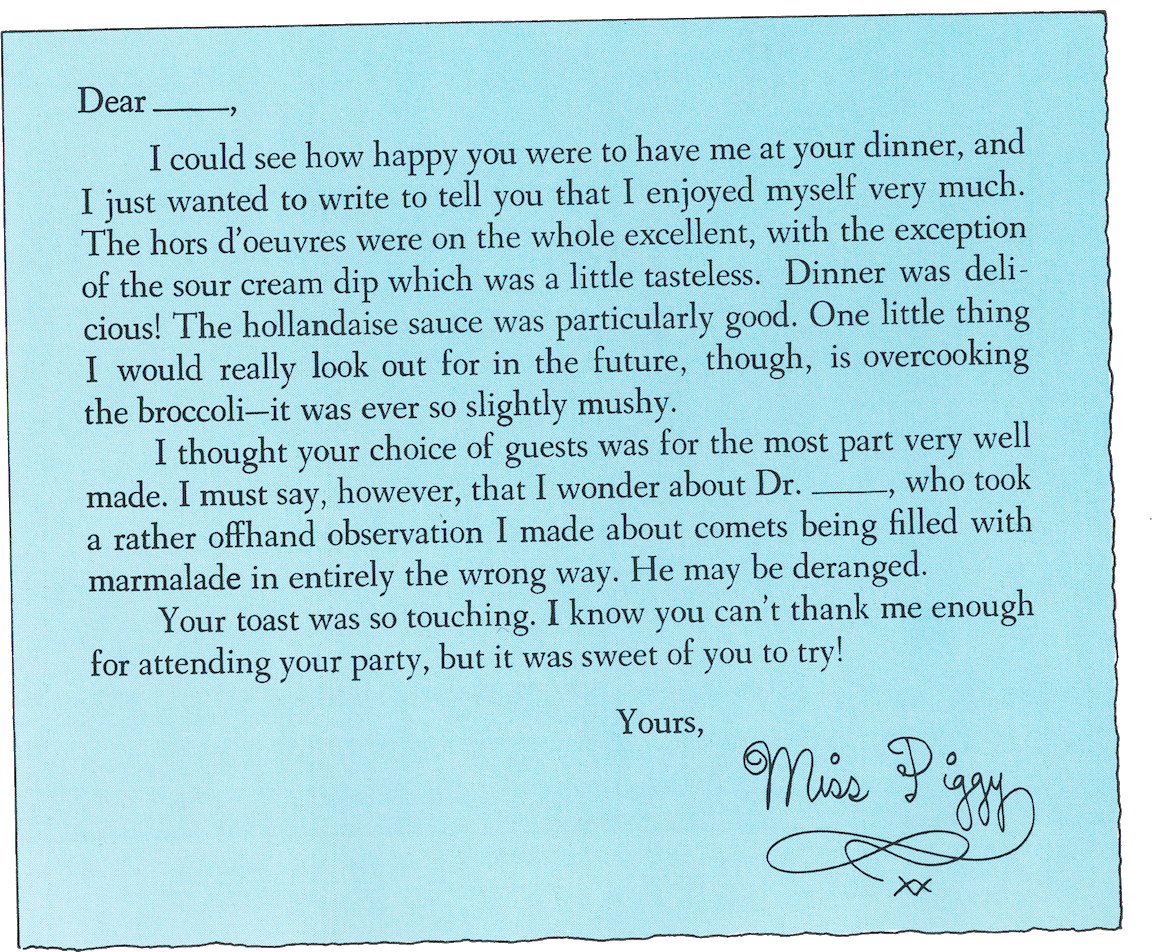 Dear _____,
I could see how happy you were to have me at your dinner, and
I just wanted to write to tell you that I enjoyed myself very much.
The hors d'oeuvres were on the whole excellent, with the exception
of the sour cream dip which was a little tasteless. Dinner was deli-
cious! The hollandaise sauce was particularly good. One little thing
I would really look out for in the future, though, is overcooking
the broccoli—it was ever so slightly mushy.
I thought your choice of guests was for the most part very well
made. I must say, however, that I wonder about Dr. _____, who took
a rather offhand observation I made about comets being filled with
marmalade in entirely the wrong way. He may be deranged.
Your toast was so touching. I know you can't thank me enough
for attending your party, but it was sweet of you to try!
Yours,
Miss Piggy
xx